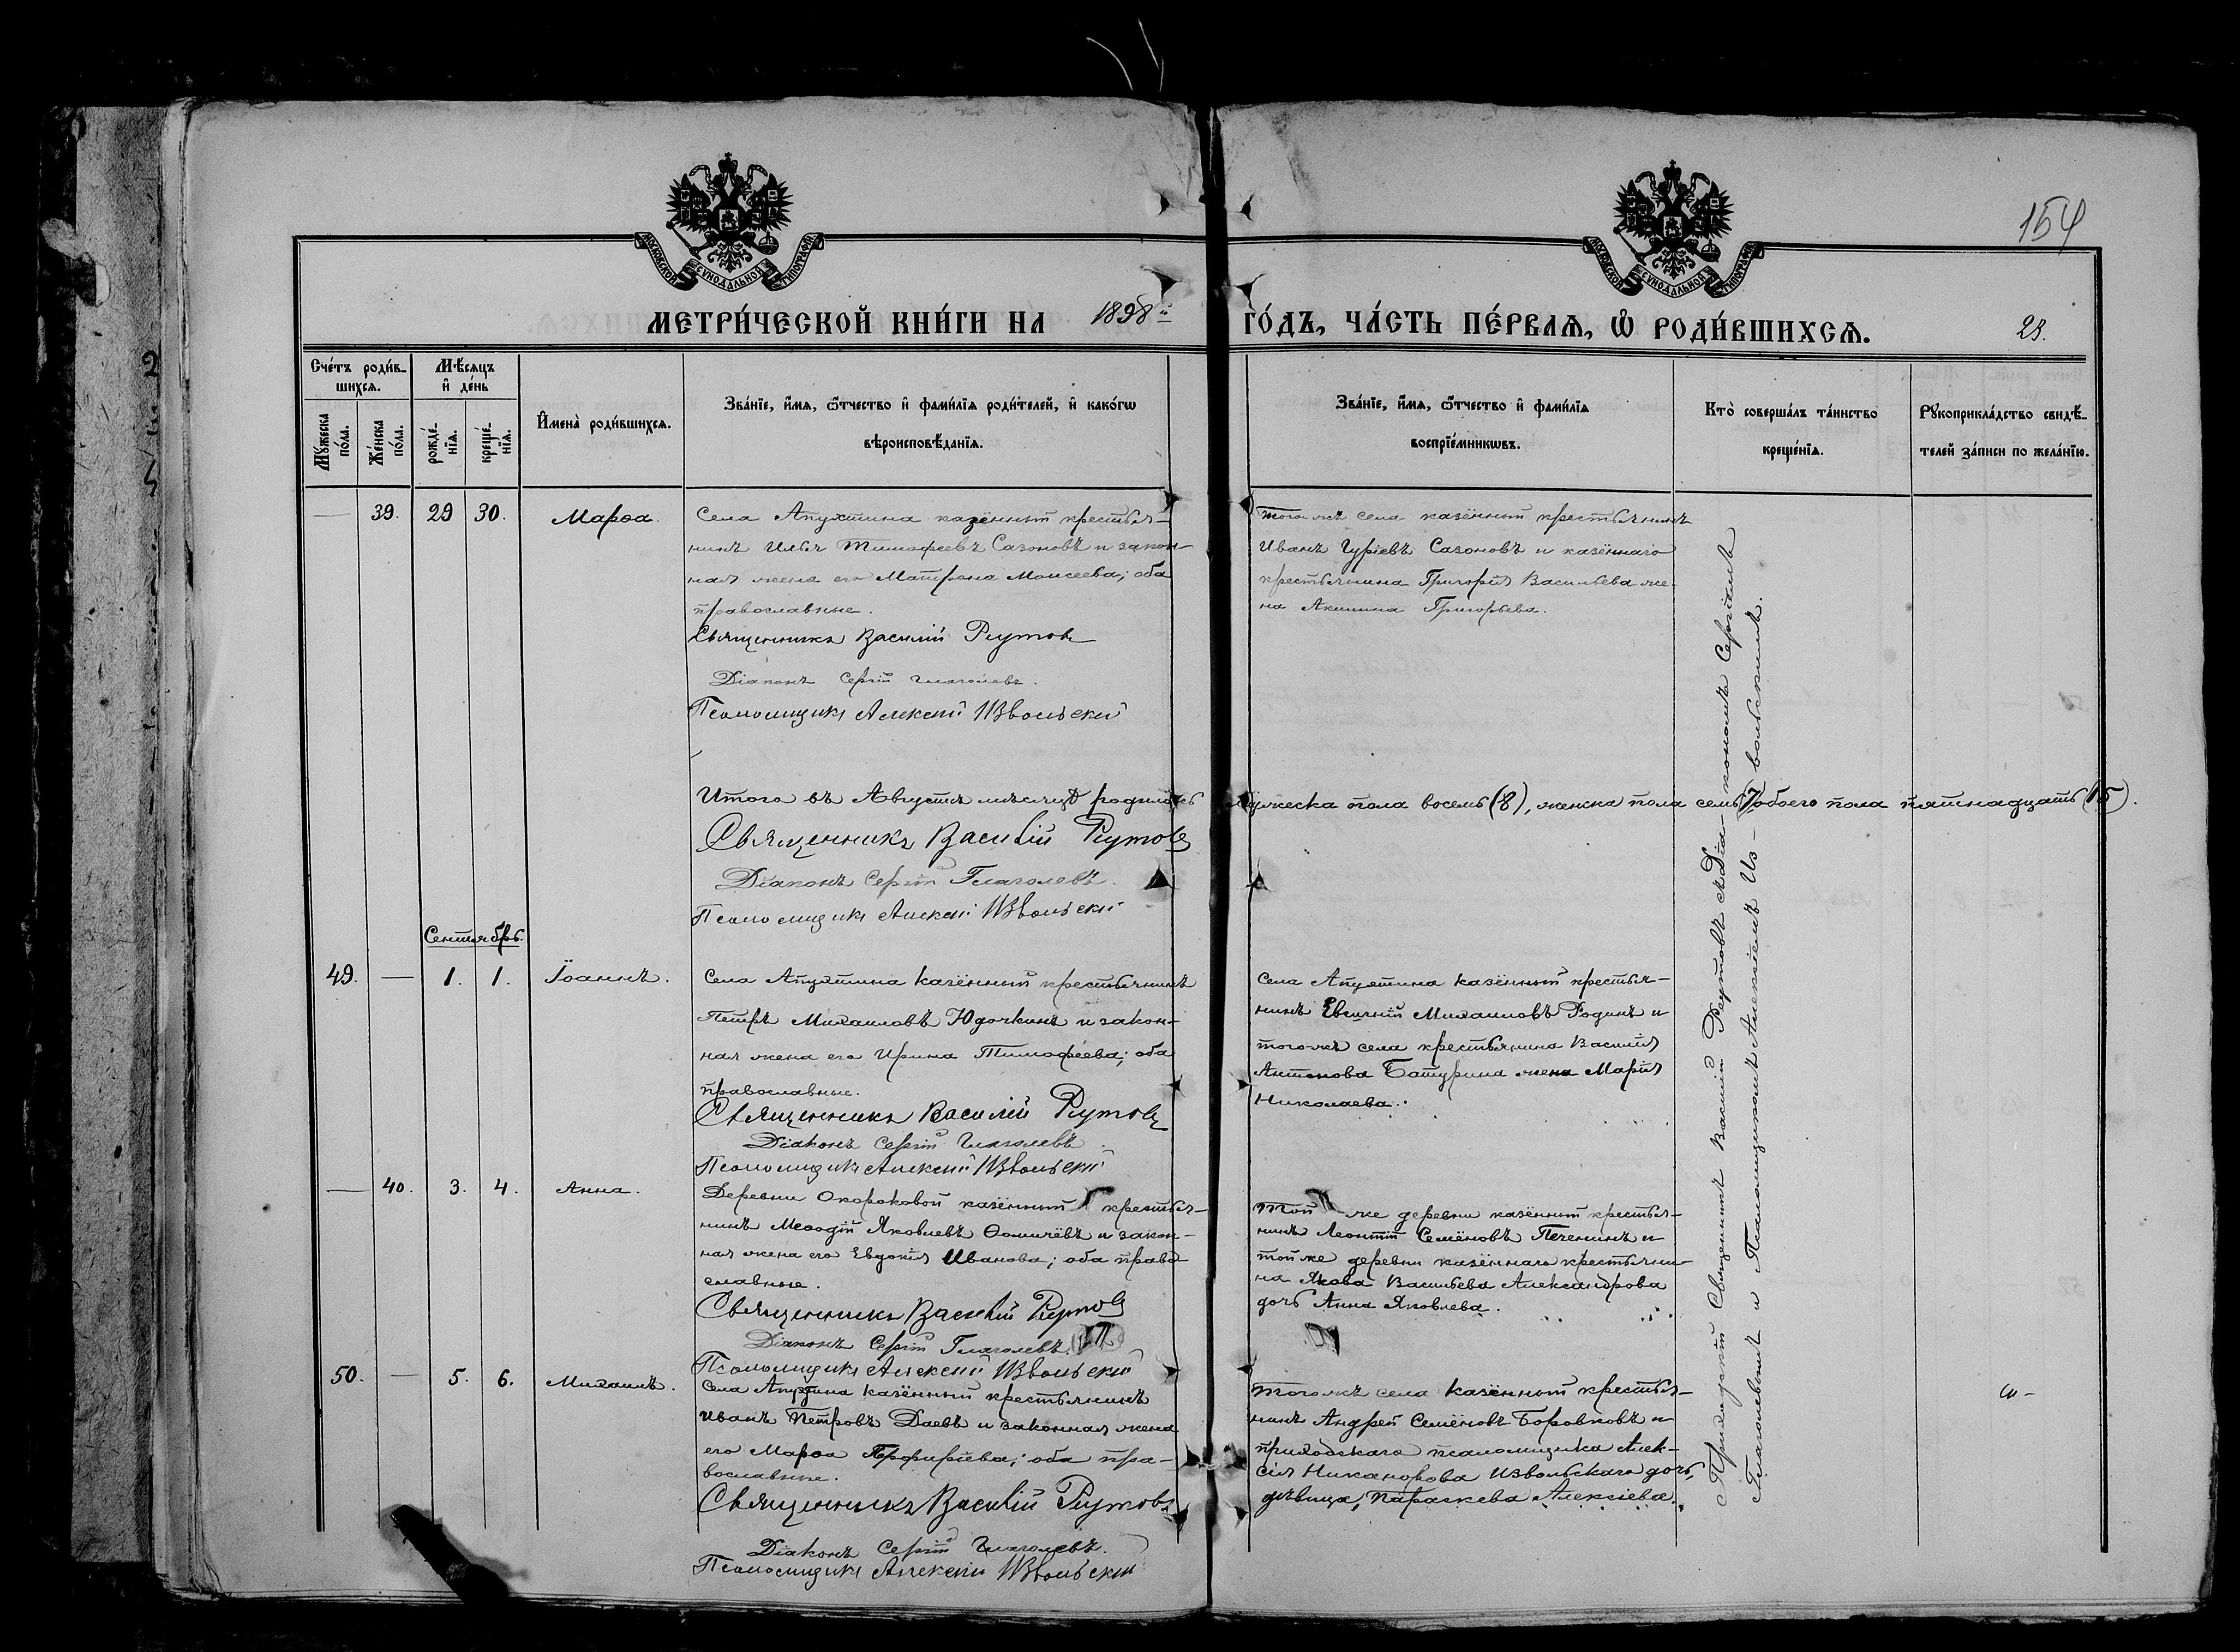 154
МОСКОВСКОЙ СѴНОДАЛЬНОЙ ТИПОГРАФІИ
МОСКОВСКОЙ СѴНОДАЛЬНОЙ ТИПОГРАФІИ
МЕТРИ́ЧЕСКОЙ КНИ́ГИ НА 1898й ГО́ДЪ, ЧА́СТЬ ПЕ́РВАѦ, Ѽ РОДИ́ВШИХСѦ. 29.
Сче́тъ роди́в-
шихся.
Мѣ́сяцъ
и҆ де́нь
Мꙋ́жеска по́ла.
Же́нска по́ла.
рожде́-нїя.
креще́-нїя.
И҆мена̀ роди́вшихся.
Зва́нїе, и҆́мя, ѻ҆́тчество и҆ фами́лїя роди́телей, и҆ како́гѡ
вѣроисповѣ́данїя.
Зва́нїе, и҆́мя, ѻ҆́тчество и҆ фами́лїя
воспрїе́мникѡвъ.
Кто̀ соверша́лъ та́инство
креще́нїя.
Рꙋкоприкла́дство свидѣ́-
телей за́писи по жела́нїю.
— 39. 29 30. Марѳа.
Села Апухтина казённый крестья-
нинъ Илья Тимофеевъ Сазоновъ и закон-
ная жена его Матрона Моисеева; оба
православные.
Священникъ Василій Реутовъ
Діаконъ Сергій Глаголевъ.
Псаломщикъ Алексій Извольскій
того же села казённый крестьянинъ
Иванъ Гуріевъ Сазоновъ и казённаго
крестьянина Григорія Васильева же-
на Акилина Григорьева.
Итого въ Августѣ мѣсяцѣ родилось мужеска пола восемь (8), женска пола семь (7) обоего пола пятнадцать (15).
Священникъ Василій Реутовъ
Діаконъ Сергій Глаголевъ.
Псаломщикъ Алексій Извольскій
Сентябрь.
49. — 1. 1. Іоаннъ.
Села Апухтина казённый крестьянинъ
Петръ Михаиловъ Юдочкинъ и закон-
ная жена его Ирина Тимофеева; оба
православные.
Священникъ Василій Реутовъ
Діаконъ Сергій Глаголевъ
Псаломщикъ Алексій Извольскій
Села Апухтина казённый крестья-
нинъ Евгеній Михаиловъ Родинъ и
того-же села крестьянина Василія
Антонова Батурина жена Марія
Николаева.
— 40. 3. 4. Анна.
Деревни Окороковой казённый крестья-
нинъ Меѳодій Яковлевъ Ѳомичёвъ и закон-
ная жена его Евдокія Иванова; оба право
славные.
Священникъ Василій Реутовъ
Діаконъ Сергій Глаголевъ.
Псаломщикъ Алексій Извольскій
Той же деревни казённый крестья-
нинъ Леонтій Семёновъ Печенинъ и
той же деревни казённаго крестьяни-
на Якова Васильева Александрова
дочь Анна Яковлева.
50. — 5. 6. Михаилъ.
Села Апухтина казённый крестьянинъ
Иванъ Петровъ Даевъ и законная жена
его Марѳа Порфиріева; оба пра-
вославные.
Священникъ Василій Реутовъ
Діаконъ Сергій Глаголевъ.
Псаломщикъ Алексій Извольскій
того же села казённый крестья-
нинъ Андрей Семёновъ Боровковъ и
приходскаго псаломщика Алек-
сія Никанорова Извольскаго дочь,
дѣвица, Параскева Алексіева.
Приходскій Священникъ Василій Реутовъ съ Діакономъ Сергіемъ
Глаголевымъ и Псаломщикомъ Алексіемъ Извольскимъ.